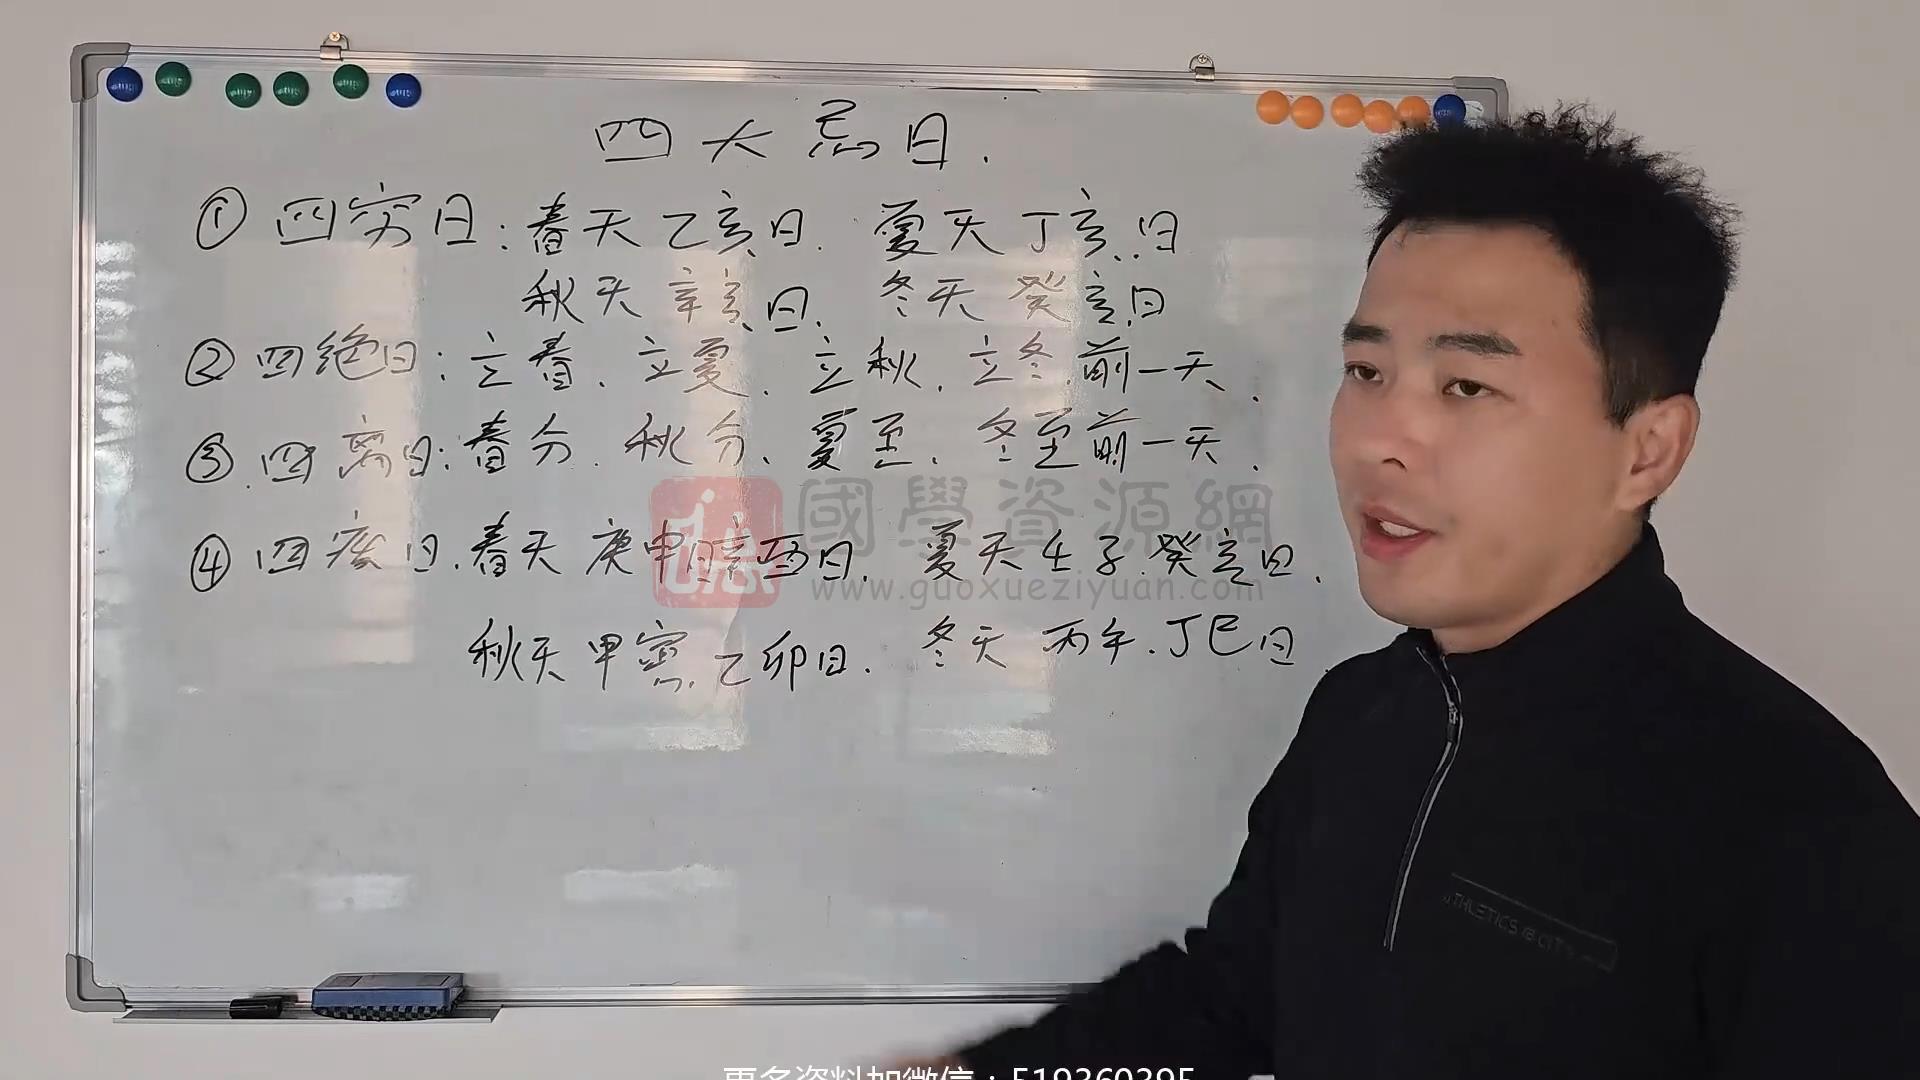 四大忌日.
① 四穷日：春天乙亥日. 夏天丁亥.日
秋天辛亥日. 冬天癸亥日
② 四绝日：立春. 立夏. 立秋. 立冬.前一天.
③ 四离日：春分. 秋分. 夏至. 冬至前一天.
④ 四废日.春天庚申 酉日. 夏天壬子.癸亥日.
秋天甲寅.乙卯日. 冬天丙午.丁巳日
國學資源網
www.guoxueziyuan.com
ATHLETICS
更多资料加微信：519360395